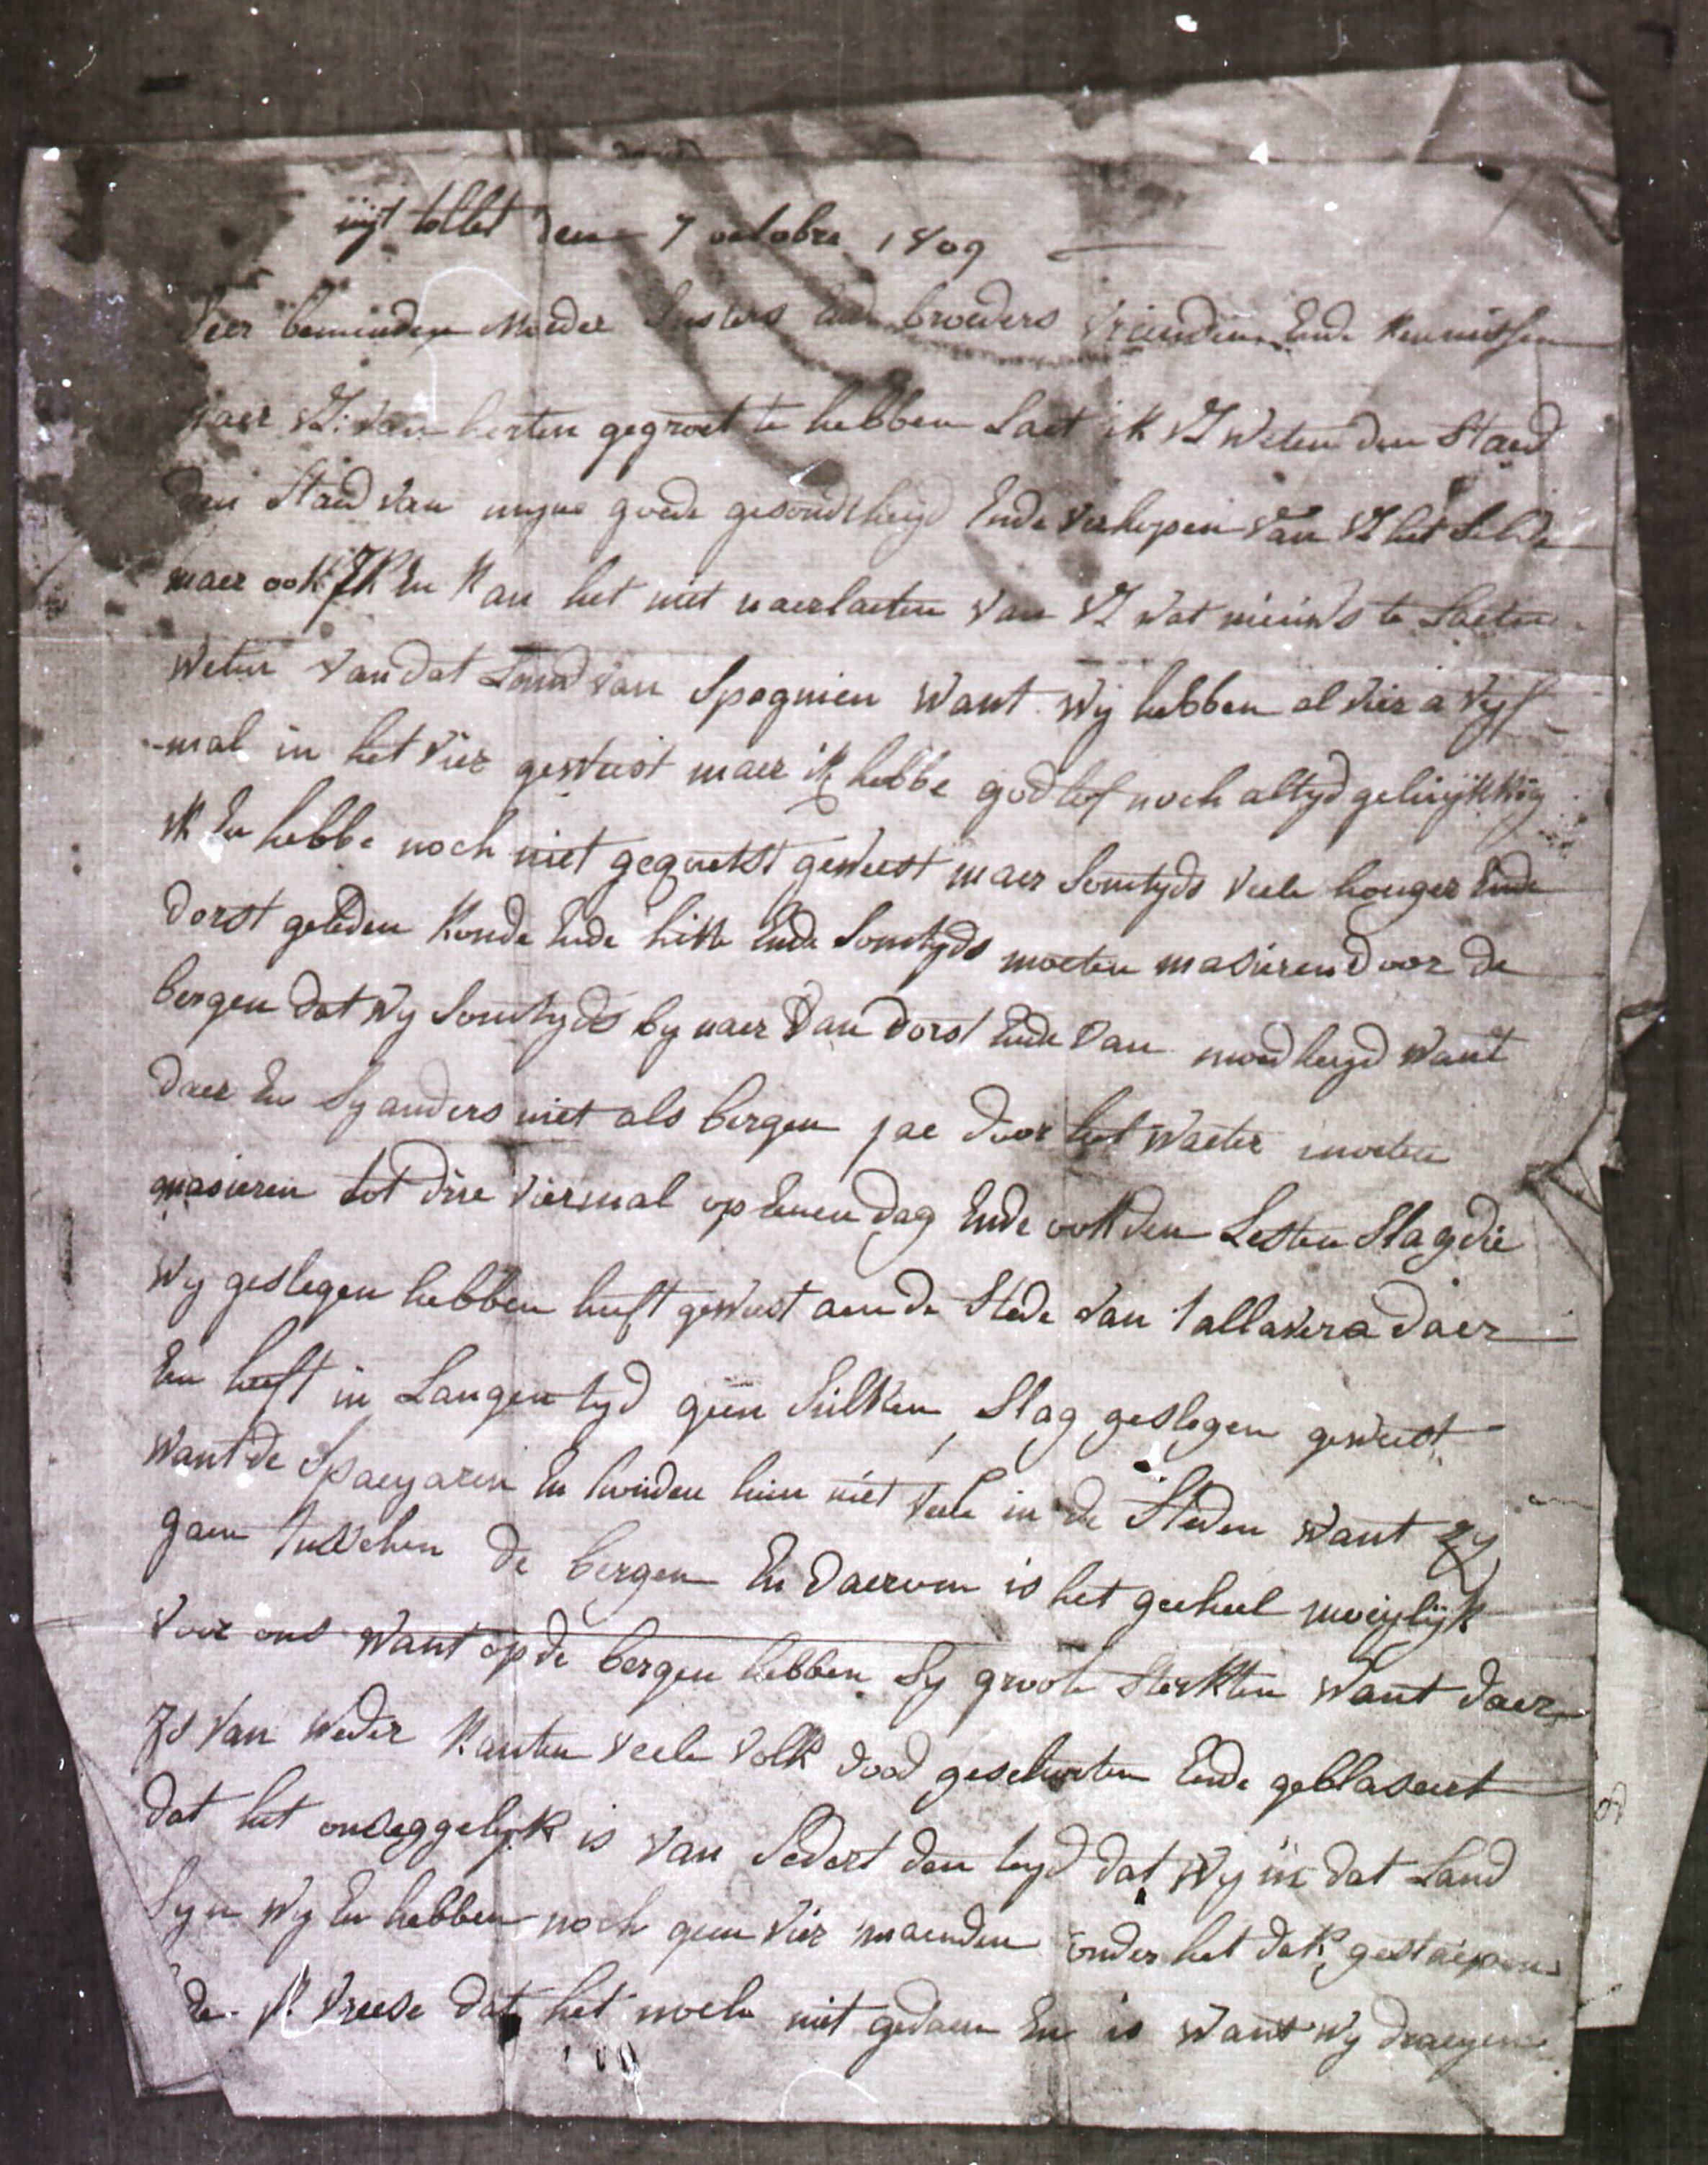 uijt tollet den 7 octobre 1809
Seer beminden Moeder susters Ende broeders vrienden Ende Kennissen
naer VL: van herten gegroet te hebben Laet ik VL weten den Staed
den Staed van myne goede gesondtheyd Ende verhopen van VL het selde
maer ook IK En Kan het niet naerlaeten van VL wat nieuws te Laeten
weten van dat Land van Spagnien want wy hebben al vier a vyf
mal in het vier geweest maer ik hebbe god lof noch altyd gelukkig
ik En hebbe noch niet gequetst geweest maer somtyds veele honger Ende
dorst geleden Koude Ende hitte Ende somtyds moeten masieren door de
bergen dat wy somtyds by naer van dorst Ende van moedheyd want
daer En Sy anders niet als bergen jae door het waeter moeten
masieren tot drie viermal op Eenen dag Ende ook den Lesten Slag die
wy geslegen hebben heeft geweest aen de Stede van tallavera daer
En heeft in Langen tyd geen sulken Slag geslegen geweest
want de Spaegaren En houden hun niet veele in de Steden want zy
gaen tusschen de bergen En daerom is het geeheel moeyelyk
voor ons want op de bergen hebben sy groote sterkten want daer
Is van weder Kanten veele volk dood geschoten Ende geblaseert
dat het onseggelyk is van sedert den tyd dat wy in dat Land
syn wy En hebben noch geen vier maenden onder het dak geslaepen
de ik vreese dat het noch niet gedaen En is want wy draegen